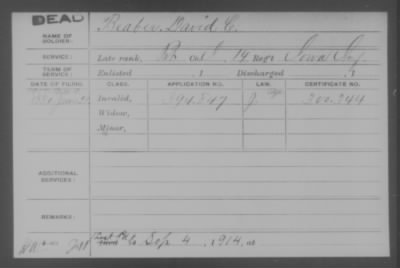 DEAD
NAME OF SOLDIER: Reaber, David C.
SERVICE: Late rank, Co. 14 Reg't Iowa Inf.
TERM OF SERVICE: Enlisted , 1 Discharged , 1
DATE OF FILING. CLASS. APPLICATION NO. LAW. CERTIFICATE NO.
Invalid, 394.547 200.344
Widow,
Minor,
ADDITIONAL SERVICES:
REMARKS:
Sep 4, 1914, at